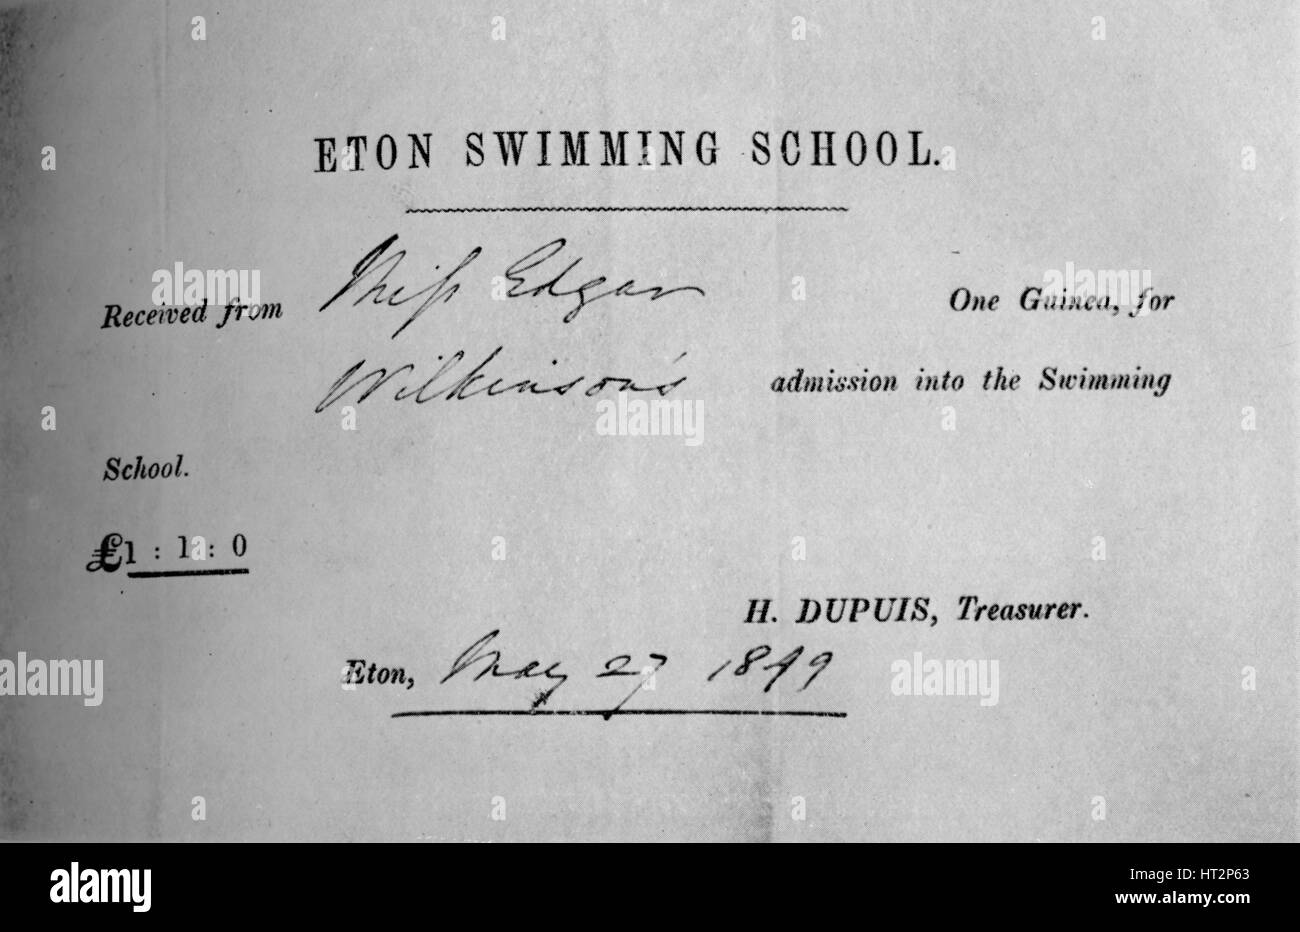 ETON SWIMMING SCHOOL.
Received from Miss Edgar One Guinea, for
Wilkinson's admission into the Swimming
School.
£1 : 1 : 0
H. DUPUIS, Treasurer.
Eton, May 27 1849
a alamy stock photo
HT2P63
www.alamy.com